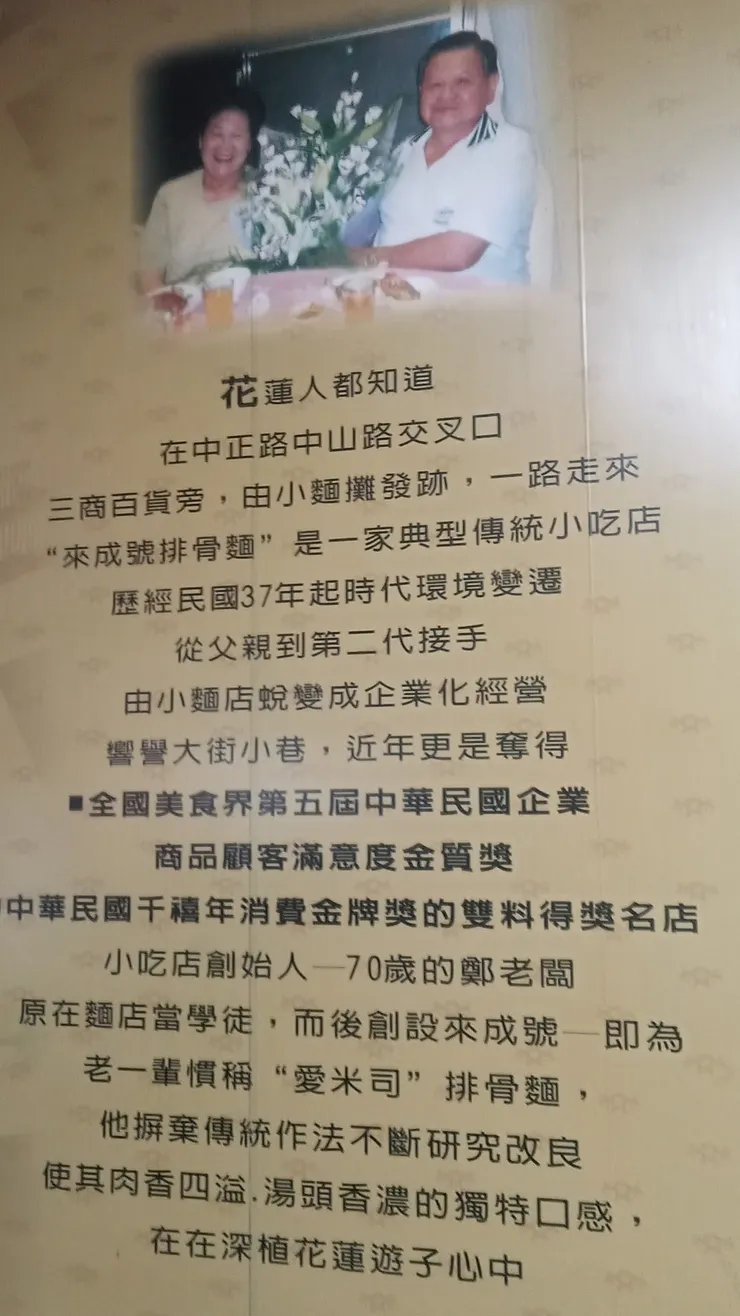 花蓮人都知道
在中正路中山路交叉口
三商百貨旁，由小麵攤發跡，一路走來
“來成號排骨麵”是一家典型傳統小吃店
歷經民國37年起時代環境變遷
從父親到第二代接手
由小麵店蛻變成企業化經營
響譽大街小巷，近年更是奪得
■全國美食界第五屆中華民國企業
商品顧客滿意度金質獎
中華民國千禧年消費金牌獎的雙料得獎名店
小吃店創始人—70歲的鄭老闆
原在麵店當學徒，而後創設來成號—即為
老一輩慣稱“愛米司”排骨麵，
他摒棄傳統作法不斷研究改良
使其肉香四溢.湯頭香濃的獨特口感，
在在深植花蓮遊子心中